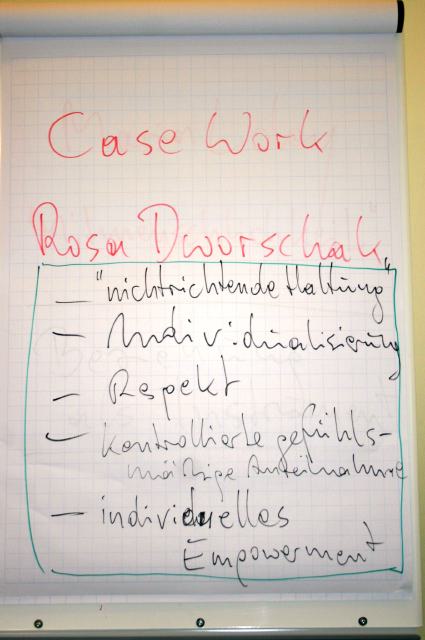 Case Work
Rosa Dworschak
- "nichtrichtende Haltung"
- Individualisierung
- Respekt
- kontrollierte gefühls-
mäßige Anteilnahme
- individuelles
Empowerment